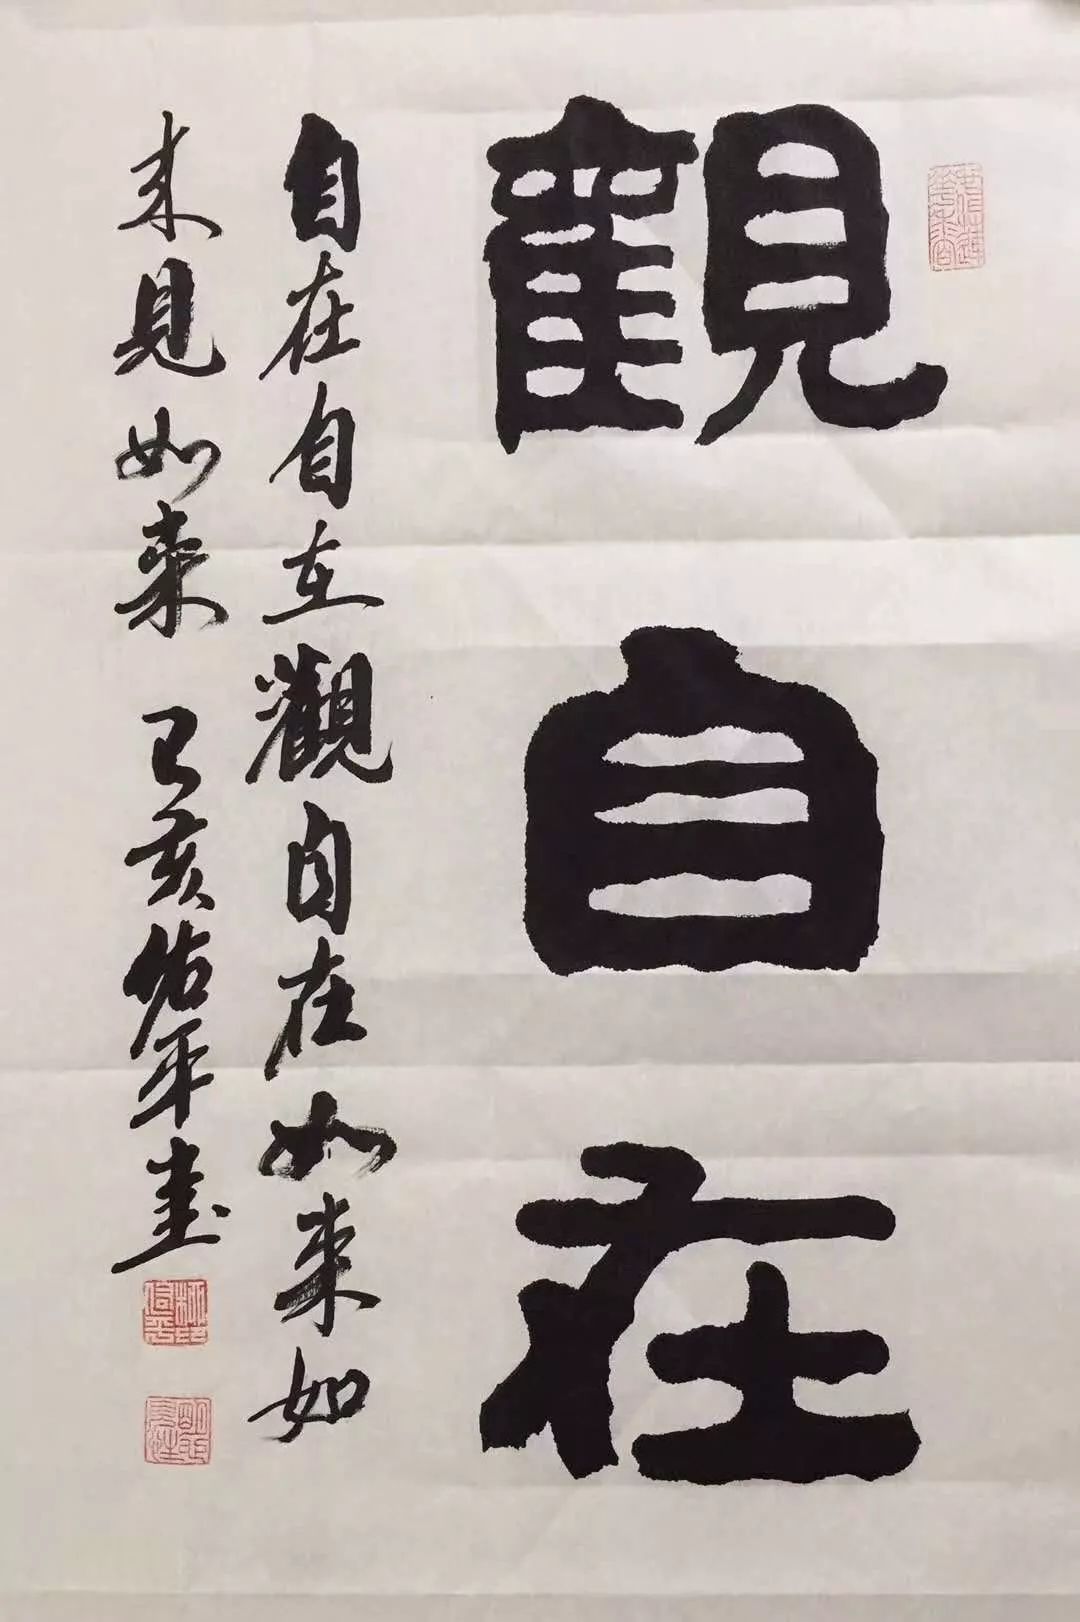 觀自在
自在自在觀自在如来如
来見如来 己亥佑平書